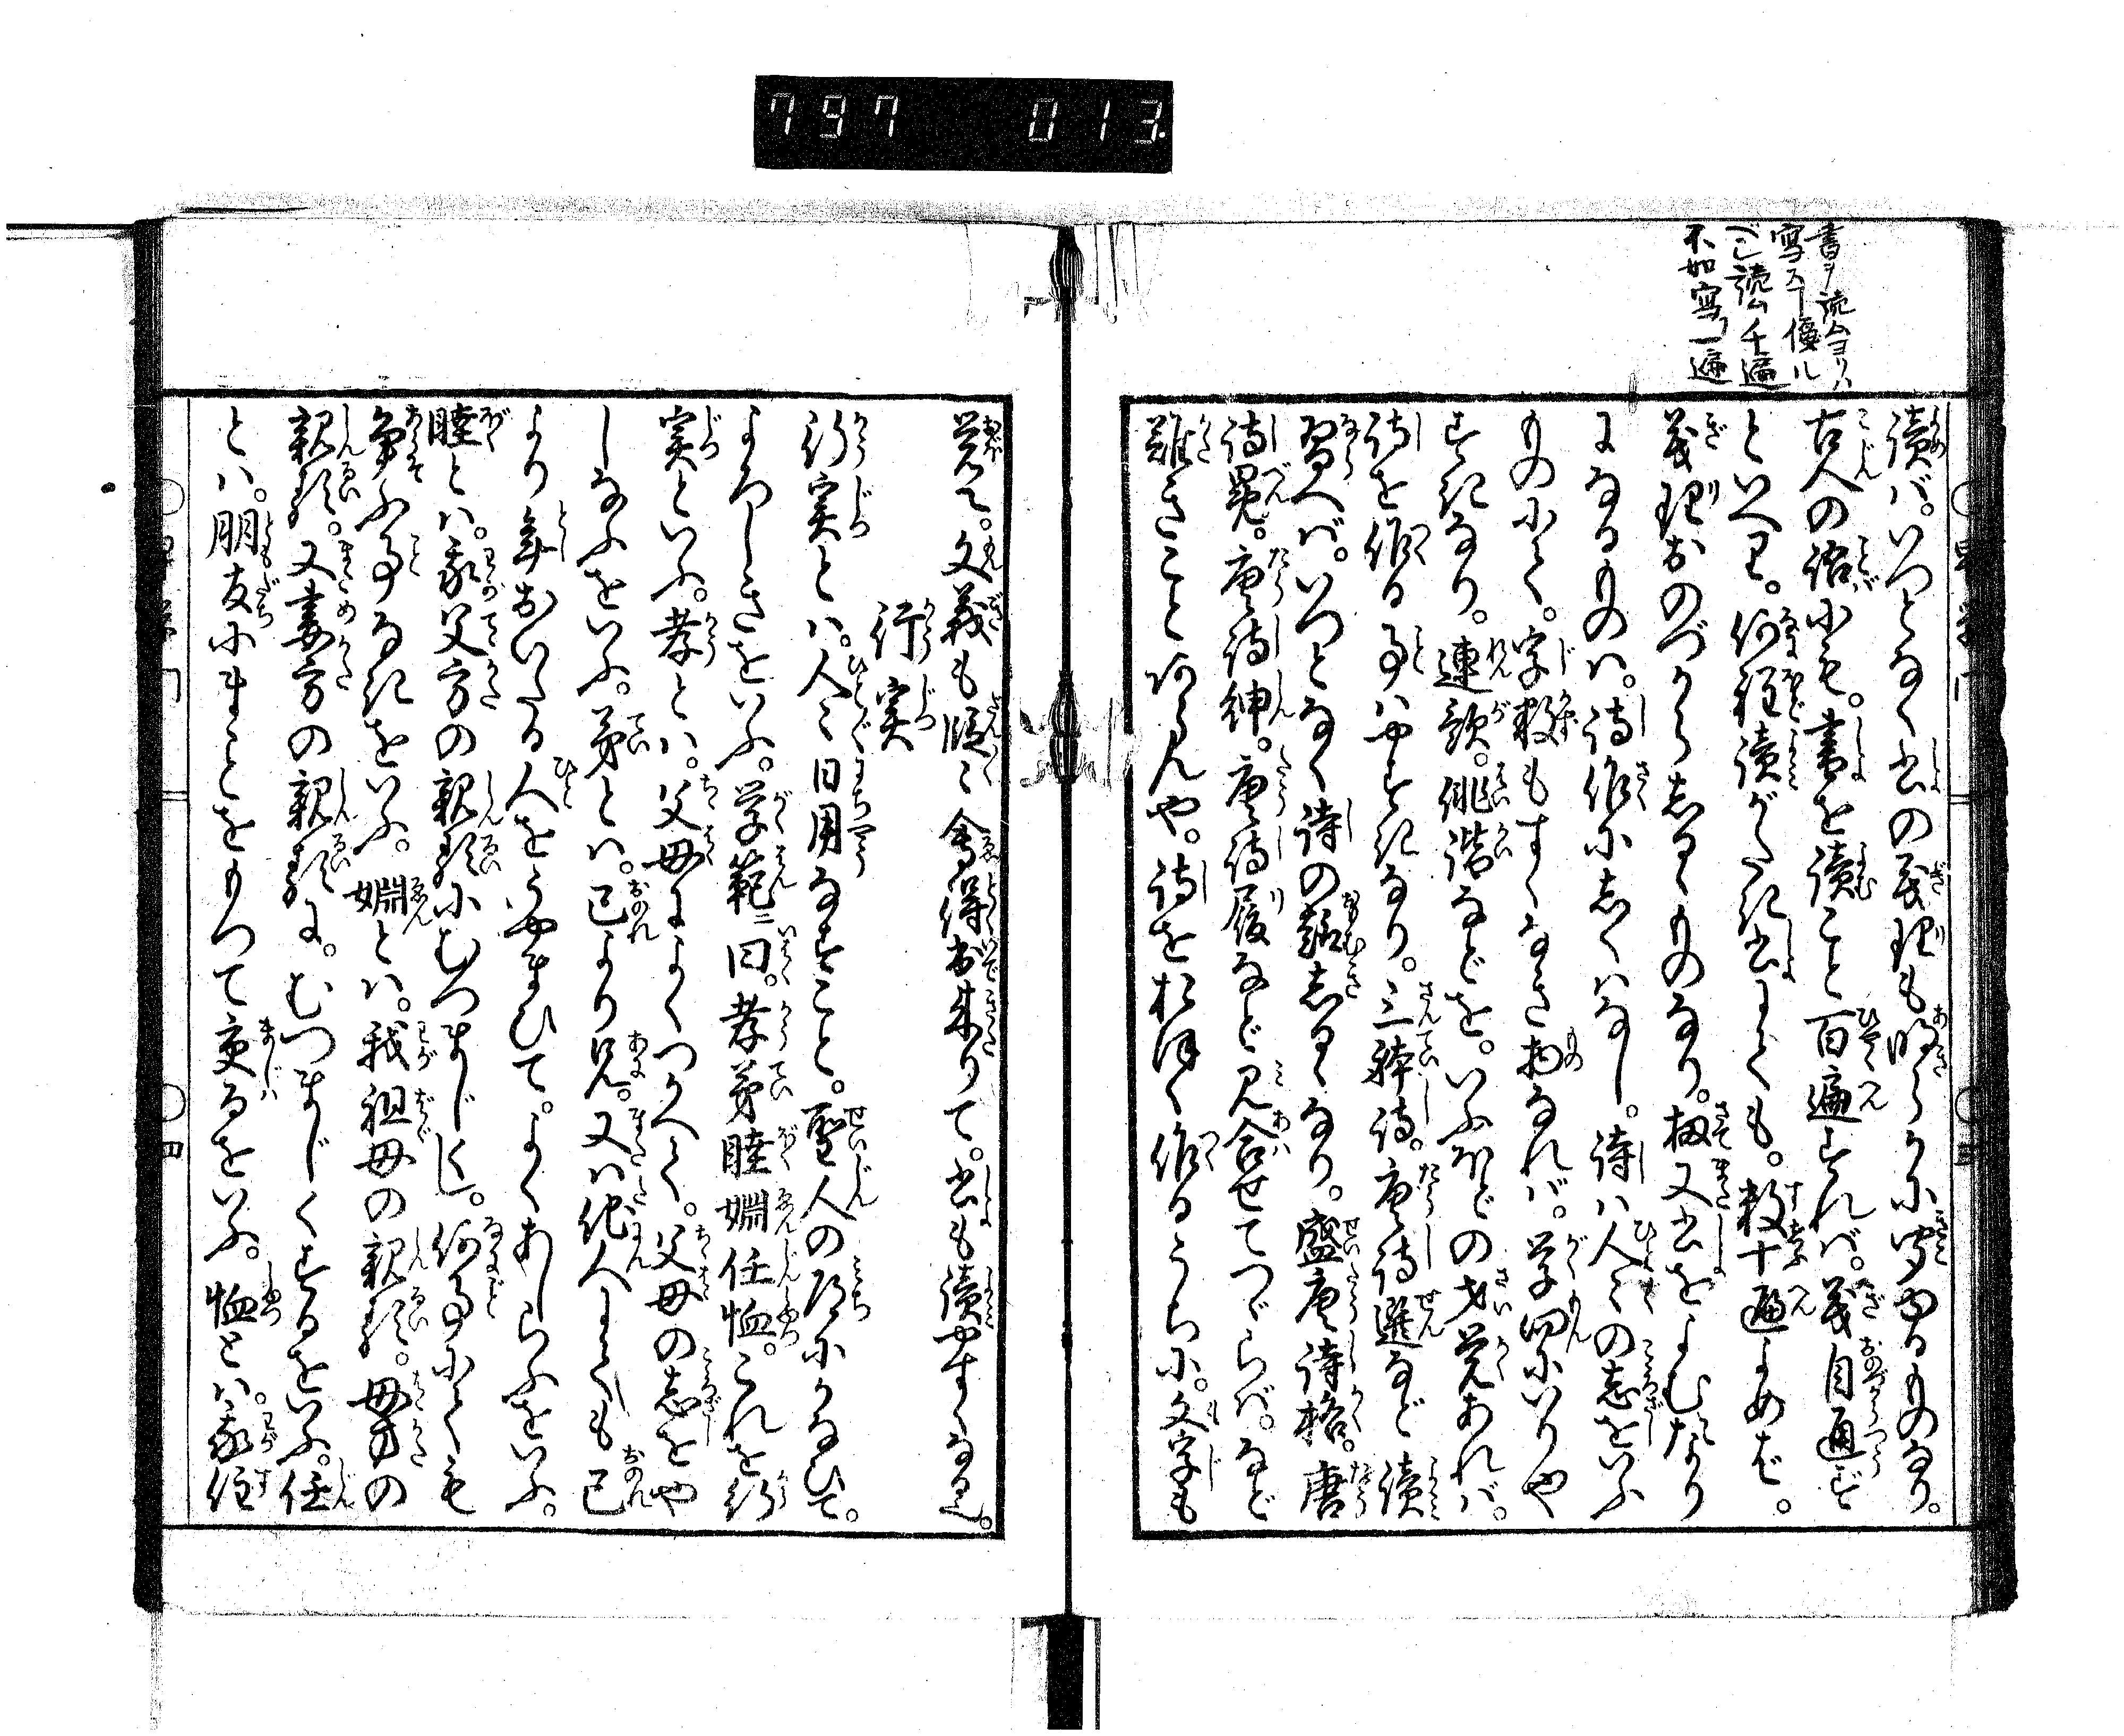 797 013.
書ヲ読ムヨリハ
写スヿ優ル
ベシ読ム千遍
不如写一遍
讀バ。いつとなく書の義理も明らかに聞ゆるものなり。
古人の語にも。書を讀こと百遍すれバ。義自通ず
といへり。何程讀がたき書にても。数十遍よめば。
義理おのづからしるゝものなり。扨又書をよむたより
になるものハ。詩作にしくハなし。詩ハ人々の志をいふ
ものにて。字数もすくなき物なれバ。学問にいりや
すきなり。連歌。俳諧などを。いふほどの才覚あれバ。
詩を作る事ハやすきなり。三躰詩。唐詩選など讀
習へバ。いつとなく詩の趣しるゝなり。盛唐詩格。唐
詩礎。唐詩紳。唐詩履など見合せてつゞらバ。など
難きことあらんや。詩をおほく作るうちに。文字も
覚て。文義も段々会得出来りて。書も讀やすくなる也。
行実
行実とハ。人々日用なすこと。聖人の道にかなひて。
よろしきをいふ。学範ニ曰。孝弟睦婣任恤。これを行
実といふ。孝とハ。父母によくつかへて。父母の志をや
しなふをいふ。弟とハ。己より兄。又ハ他人にても己
より年おいたる人をうやまひて。よくあしらふをいふ。
睦とハ。我父方の親類にむつまじくし。何事にても
争ふ事なきをいふ。婣とハ。我祖母の親類。母方の
親類。又妻方の親類に。むつまじくするをいふ。任
とハ。朋友にまことをもつて交るをいふ。恤とハ。我住
四